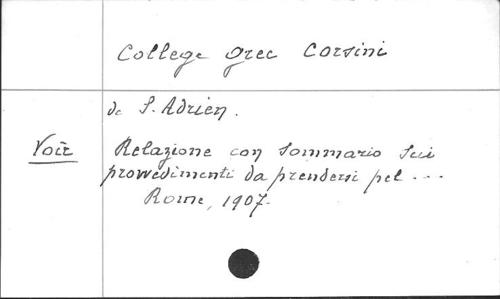 College grec Corsini
de S. Adrien.
Voir
Relazione con sommario sui
provvedimenti da prendersi pel ...
Rome, 1907.